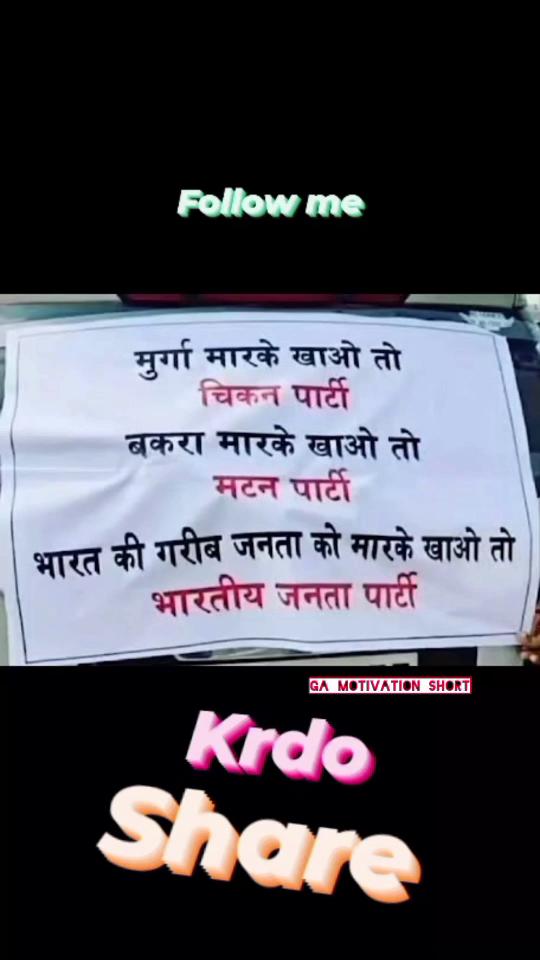 Follow me
मुर्गा मारके खाओ तो
चिकन पार्टी
बकरा मारके खाओ तो
मटन पार्टी
भारत की गरीब जनता को मारके खाओ तो
भारतीय जनता पार्टी
GA MOTIVATION SHORT
Krdo
Share